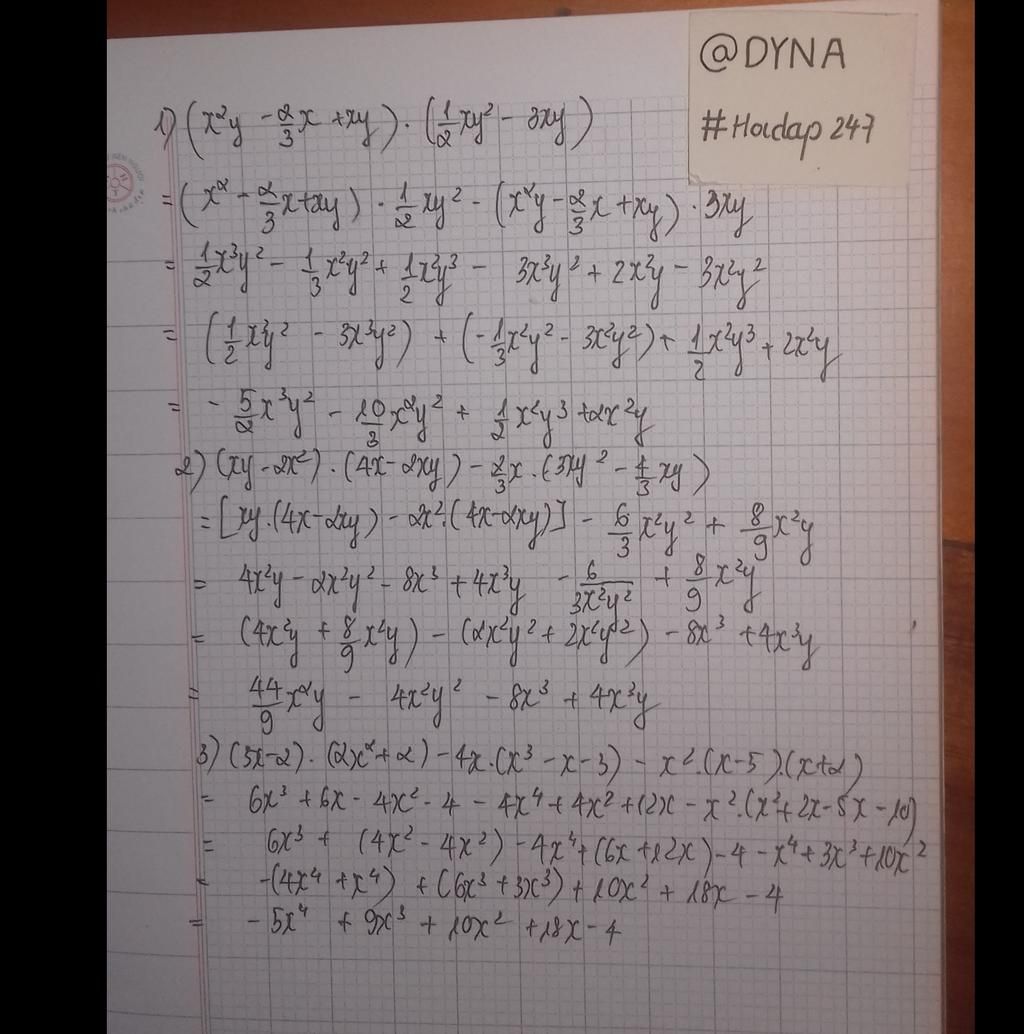 @DYNA
#Hoidap 247
1) (x²y - 2/3x + xy) . (1/2xy² - 3xy)
= (x² - 2/3x + xy) . 1/2xy² - (x²y - 2/3x + xy) . 3xy
= 1/2x³y² - 1/3x²y² + 1/2x²y³ - 3x³y² + 2x²y - 3x²y²
= (1/2x³y² - 3x³y²) + (-1/3x²y² - 3x²y²) + 1/2x²y³ + 2x²y
= - 5/2x³y² - 10/3x²y² + 1/2x²y³ + 2x²y
2) (xy - 2x²) . (4x - 2xy) - 2/3x . (3xy² - 4/3xy)
= [xy.(4x - 2xy) - 2x².(4x - 2xy)] - 6/3x²y² + 8/9x²y
= 4x²y - 2x²y² - 8x³ + 4x³y - 6/3x²y² + 8/9x²y
= (4x²y + 8/9x²y) - (2x²y² + 2x²y²) - 8x³ + 4x³y
= 44/9x²y - 4x²y² - 8x³ + 4x³y
3) (3x - 2) . (2x² + 2) - 4x.(x³ - x - 3) - x².(x - 5).(x + 2)
= 6x³ + 6x - 4x² - 4 - 4x⁴ + 4x² + 12x - x².(x² + 2x - 5x - 10)
= 6x³ + (4x² - 4x²) - 4x⁴ + (6x + 12x) - 4 - x⁴ + 3x³ + 10x²
= -(4x⁴ + x⁴) + (6x³ + 3x³) + 10x² + 18x - 4
= - 5x⁴ + 9x³ + 10x² + 18x - 4